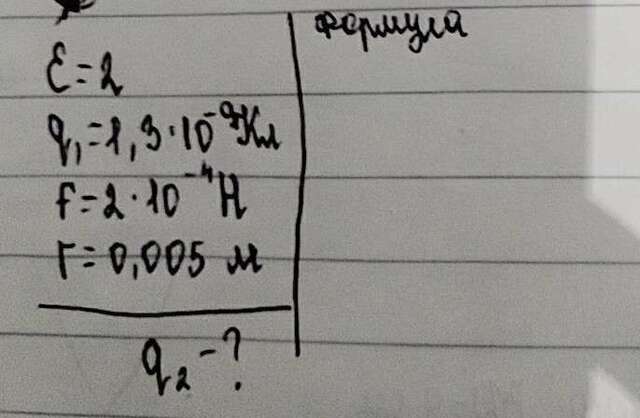 формула
ε=2
q₁=1,3·10⁻⁹Кл
F=2·10⁻⁴Н
r=0,005 м
q₂-?